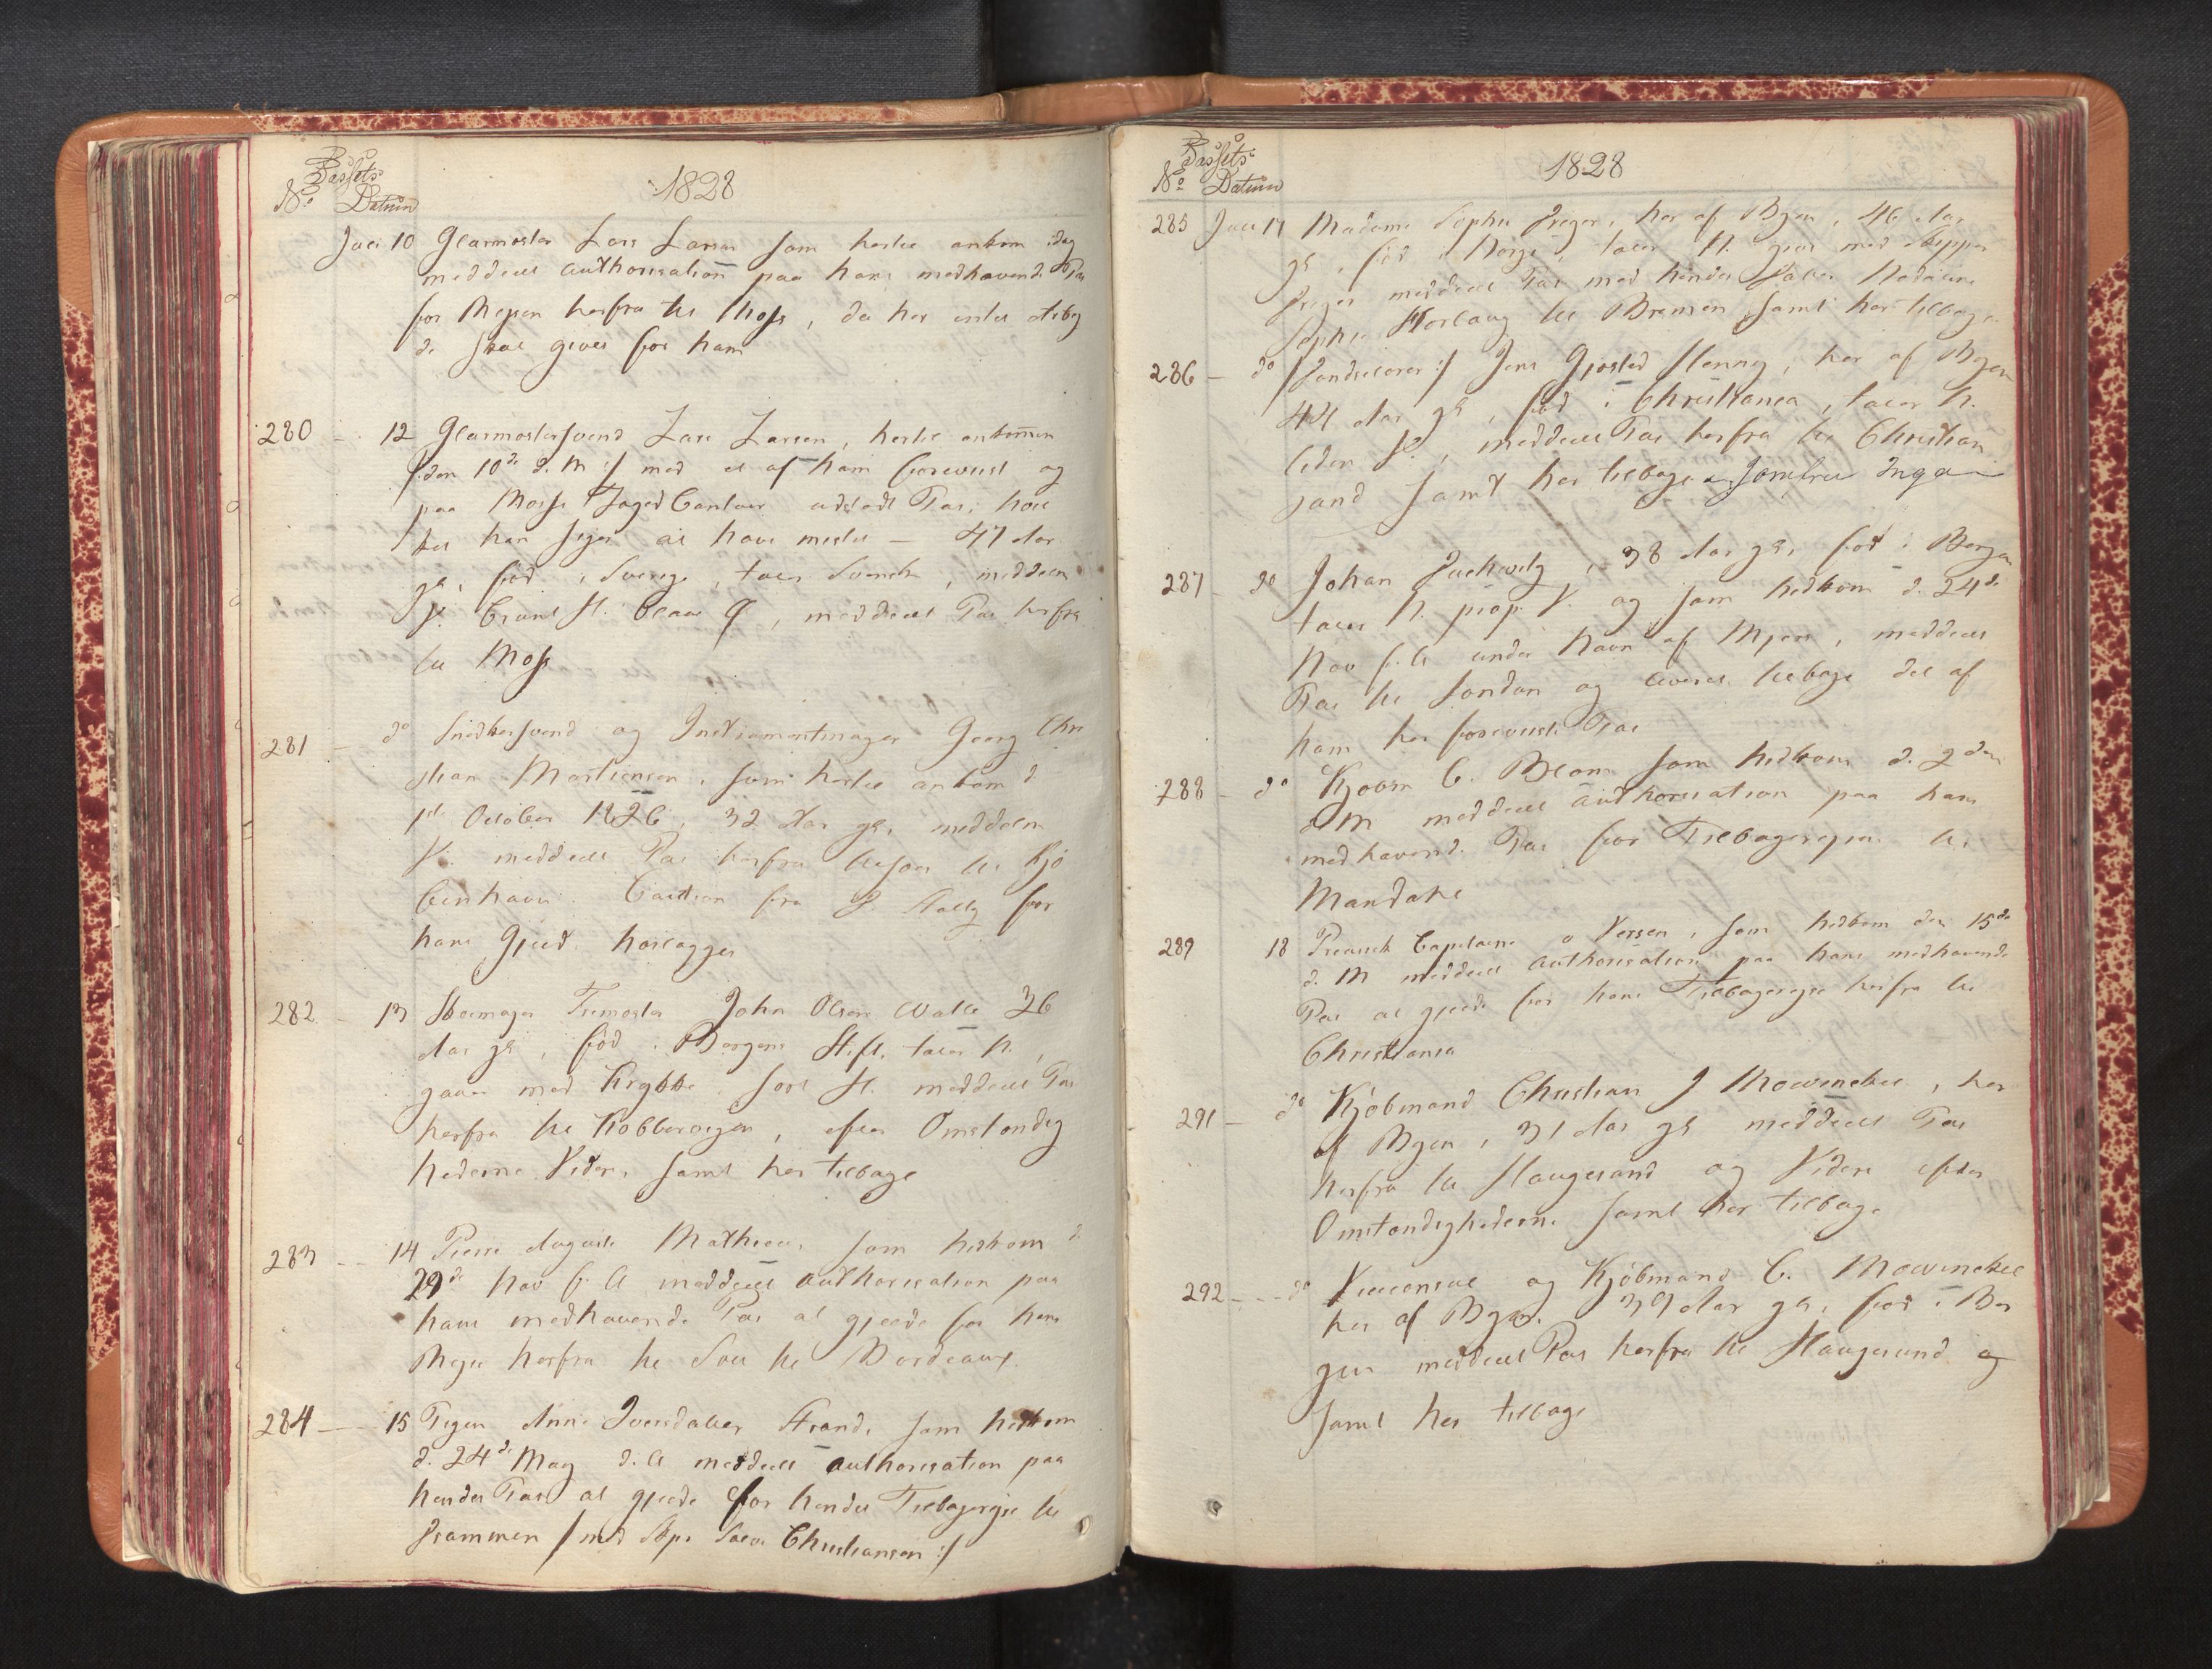 Passets
No Datum 1828
Juli 10 Glarmester Lars Larsen som hertil ankom idag
meddeelt authorisation paa hans medhavende Pas
for Reisen herfra til Moss, da her intet
skal gives for ham
280 12 Glarmestersvend Lars Larsen, hertil ankommen
den 10de d. M :/ med et af ham foreviist og
paa Moss Foged Contoir udstedt Pas, hvil
ket han siger at have mistet — 47 Aar
gl, født i Sverrig, taler Svensk, middels
V. Bruunt H. blaae, meddeelt Pas herfra
til Moss
281 do Snedkersvend og Instrumentmager Georg Chri
stian Martiensen, som hertil ankom d
1ste October 1826, 32 Aar gl, middels
V. meddeelt Pas herfra til Kjø
benhavn. Caution fra for
hans Gjeld
282 13 Skomager John Olsen Walle 36
Aar gl, født i Bergens Stift, taler N.,
gaaer med Krykke sort H. meddeelt Pas
herfra til Kobbervigen, efter Omstændig
hederne Videre samt her tilbage
283 14 Pierre Auguste Mathieu, som hidkom d
29de Nov f. A meddeelt authorisation paa
hans medhavende Pas at gjelde for hans
Reise herfra til Søes til Bordeaux
284 15 Pigen Anne Iversdatter Strand, som hidkom
d. 24de May d. A meddeelt authorisation paa
hendes Pas at gjelde for hendes Tilbagereise til
/ med Skpr Christiansen :/
Passets
No Datum 1828
285 Juli 17 Madame Sophie Greger, her af Byen, 46 Aar
gl, født i Norge, taler N. gift med Skipper
Greger meddeelt Pas med hendes Datter Madame
Sophie til Bremen samt her tilbage
286 do Jens Gjersted Henny, her af Byen
44 Aar gl, født i Christiania, taler N.
liden V., meddeelt Pas herfra til Christian
sand samt her tilbage Jomfrue Inga
287 do Johan 38 Aar gl, født i Bergen
taler N. prop. V. og som hidkom d. 24de
Nov f. A under Navn af Myers, meddeelt
Pas til London og leveret tilbage det af
ham her foreviiste Pas
288 do Kjøbm C. Blom som hidkom d. 2den
d M meddeelt authorisation paa hans
medhavende Pas for Tilbagereisen til
Mandahl
289 18 Premier Capitaine v Kersen, som hidkom den 15de
d. M meddeelt authorisation paa hans medhavende
Pas at gjelde for hans Tilbagereise herfra til
Christiania
291 do Kjøbmand Christian J Mowinckel, her
af Byen, 31 Aar gl meddeelt Pas
herfra til Haugesund og Videre efter
Omstændighederne samt her tilbage
292 do Viceconsul og Kjøbmand C. Mowinckel
her af Byen, 39 Aar gl, født i Ber
gen meddeelt Pas herfra til Haugesund og
samt her tilbage